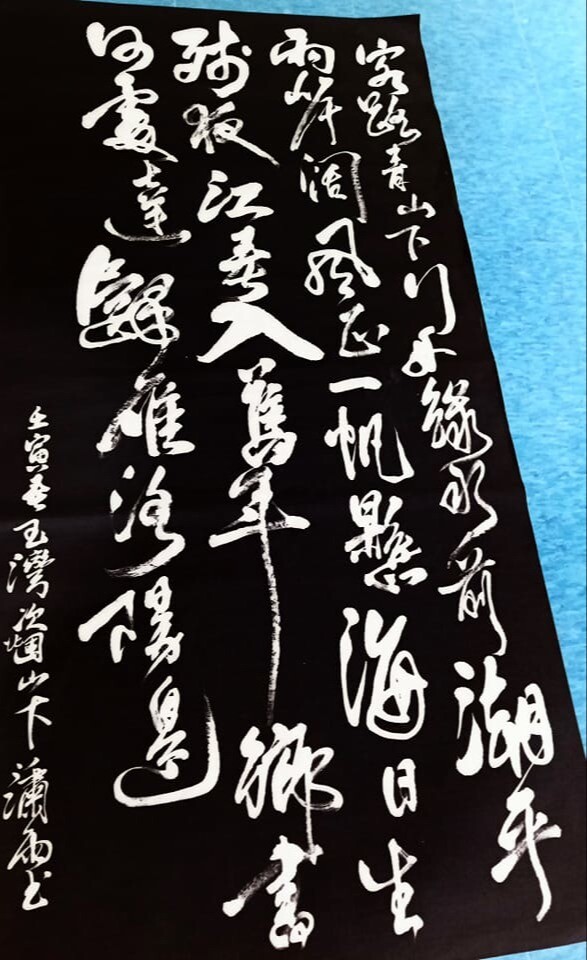 客路青山下行舟綠水前潮平
兩岸闊風正一帆懸海日生
殘夜江春入舊年鄉書
何處達歸雁洛陽邊
壬寅春王灣次北固山下瀟雨书